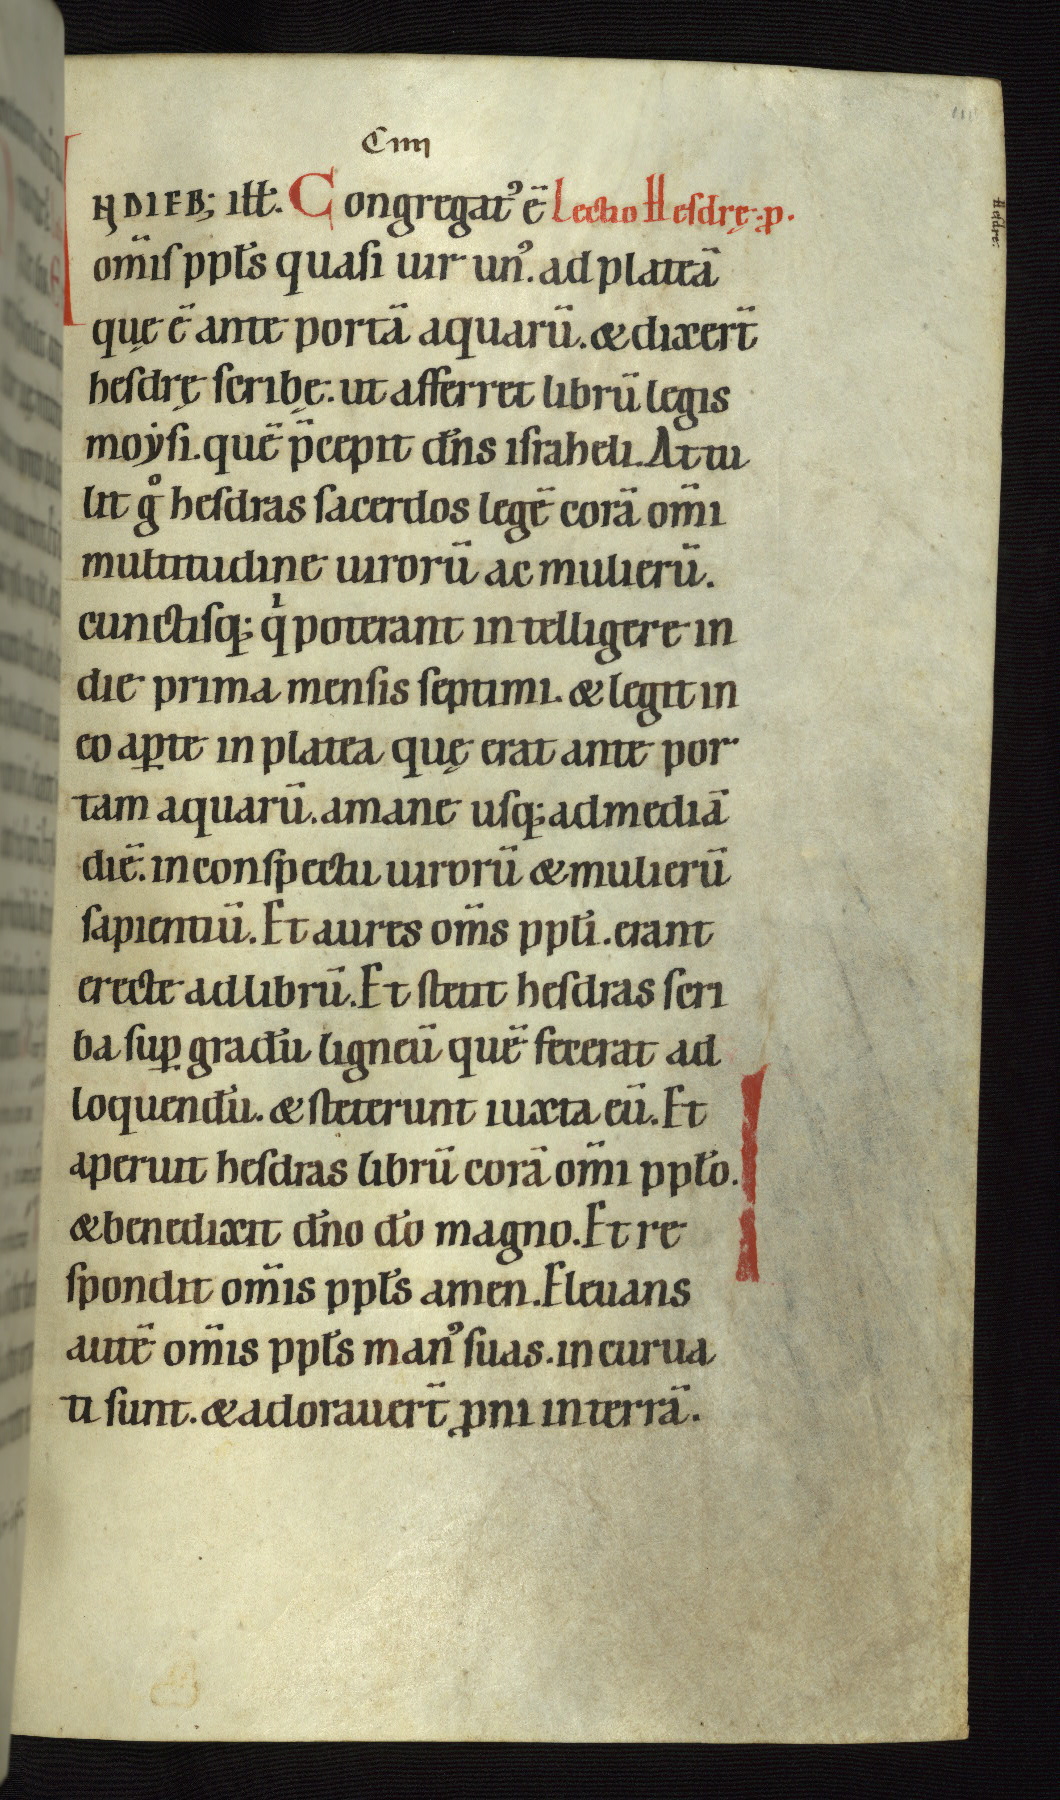 Ciiii
IN DIEB; iƚƚ. Congregatꝰ ē Lectio Hesdrę .p.
om̄is ppƚs quasi uir unꝰ. ad plateā
quę ē ante portā aquarū. & dixer̄t
hesdrę scribę. ut afferret librū legis
moẏsi. quē p̄cepit dn̄s israheli. Attu
lit g̊ hesdras sacerdos legē corā om̄i
multitudine uirorū ac mulierū.
cunctisq; qͥ poterant intelligere in
die prima mensis septimi. & legit in
eo aꝑte in platea quę erat ante por
tam aquarū. amane usq; ad mediā
diē. in conspectu uirorū & mulierū
sapientiū. Et aures om̄s ppƚi. erant
erecte ad librū. Et stetit hesdras scri
ba suꝑ gradū ligneū quē fecerat ad
loquendū. & steterunt iuxta eū. Et
aperuit hesdras librū corā om̄i ppƚo.
& benedixit dn̄o dō magno. Et re
spondit om̄is ppƚs amen. Eleuans
autē om̄is ppƚs manꝰ suas. incurua
ti sunt. & adorauer̄t ꝓni in terrā.
Hesdre.